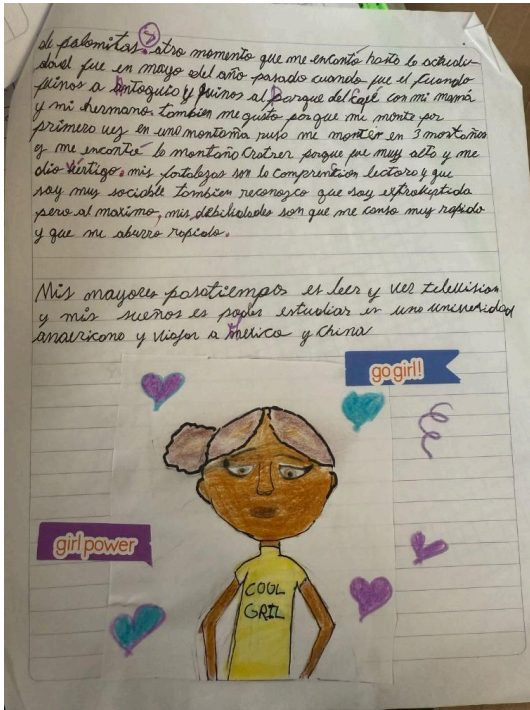 de palomitas. otro momento que me encantó hasta la actuali-
dad fue en mayo del año pasado cuando fue el cuando
fuimos a Antoquia y fuimos al Parque del Café con mi mamá
y mi hermano. tambien me gusto porque mi monte por
primera vez en una montaña rusa me monter en 3 montañas
y me encontré la montaña Cratrer porque fue muy alto y me
dio vértigo. mis fortalezas son la comprention lectora y que
soy muy sociable tambien reconozco que soy extrobertida
pero al maximo, mis debilidades son que me canso muy rapido
y que me aburro rapido.
Mis mayores pasatiempos es leer y ver television
y mis sueños es poder estudiar es una universidad
americana y viajar a Mexico y China
go girl!
girl power
COOL
GRIL